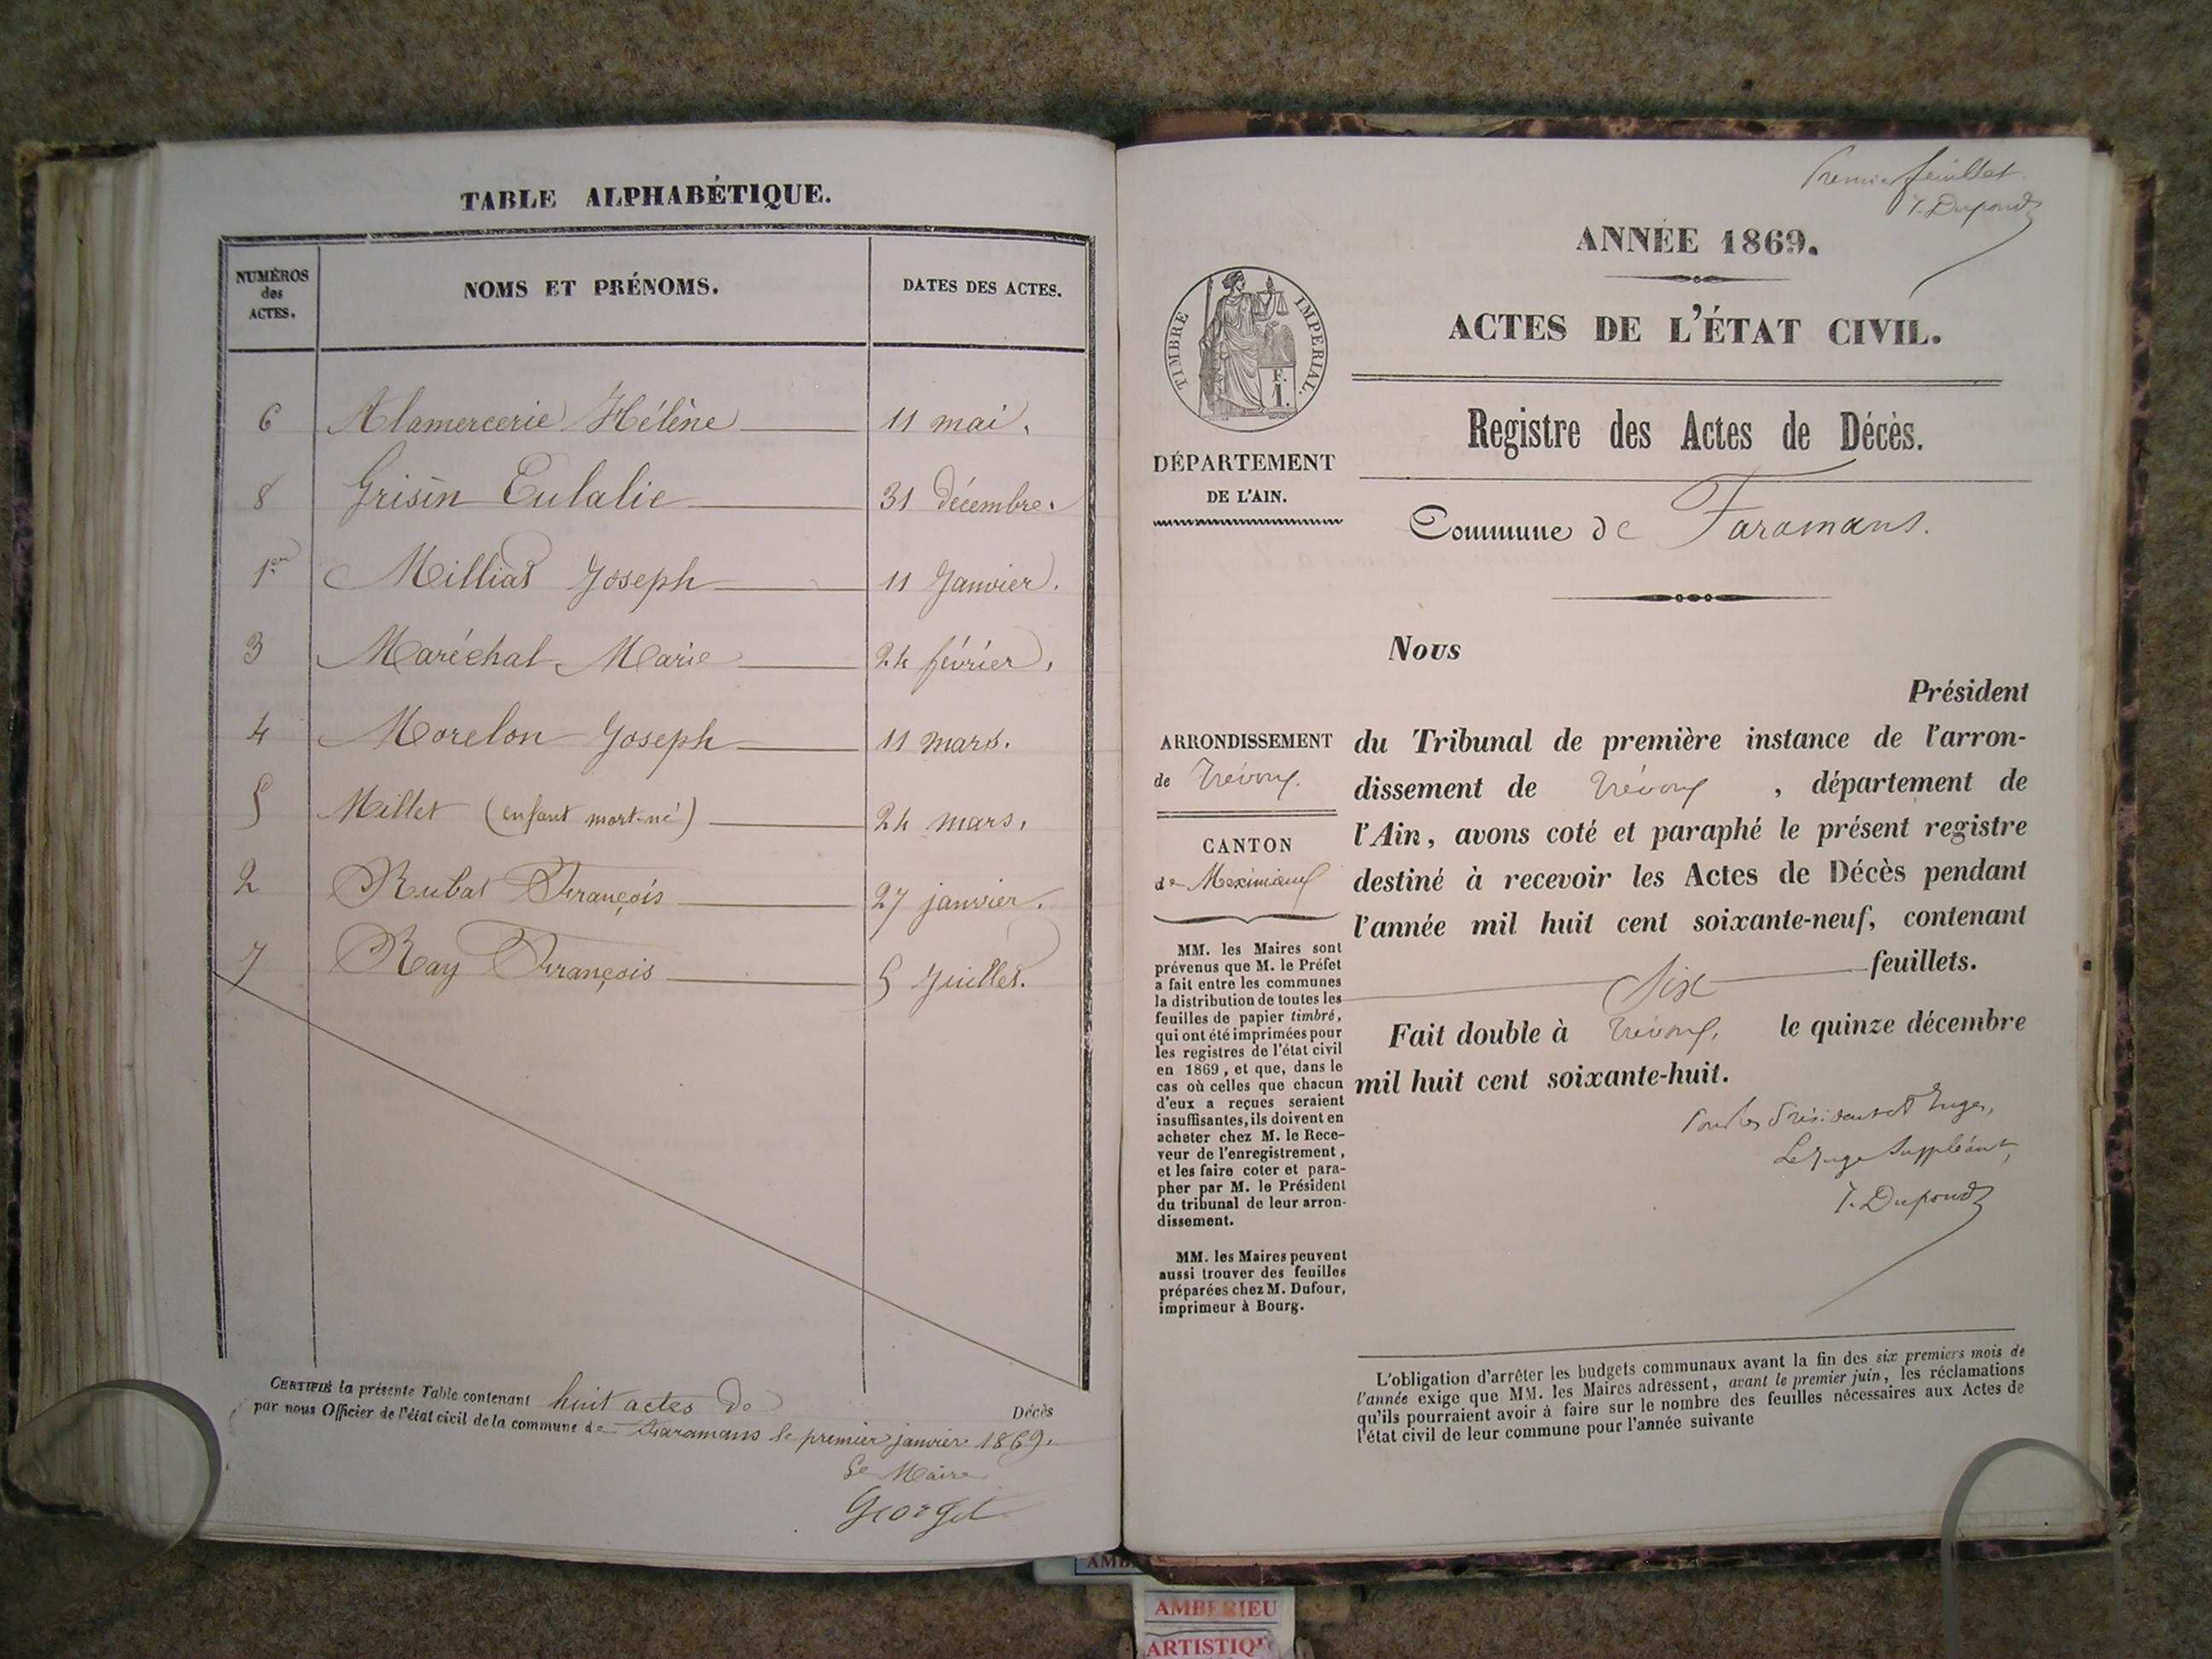 TABLE ALPHABÉTIQUE.
NUMÉROS
des
ACTES.
NOMS ET PRÉNOMS.
DATES DES ACTES.
6 Alamercerie Hélène 11 mai.
8 Grisin Eulalie 31 décembre.
1er Milliat Joseph 11 Janvier.
3 Maréchal Marie 24 février.
4 Morelon Joseph 11 mars.
5 Millet (enfant mort-né) 24 mars.
2 Rubat François 27 janvier.
7 Ray François 5 Juillet.
CERTIFIÉ la présente Table contenant huit actes de Décès
par nous Officier de l'état civil de la commune de Faramans le premier janvier 1869.
Le Maire
Georget
Premier feuillet
J. Dupond
ANNÉE 1869.
ACTES DE L'ÉTAT CIVIL.
TIMBRE IMPERIAL.
F.
1.
DÉPARTEMENT
DE L'AIN.
Registre des Actes de Décès.
Commune de Faramans.
Nous
Président
du Tribunal de première instance de l'arron-
dissement de Trévoux, département de
l'Ain, avons coté et paraphé le présent registre
destiné à recevoir les Actes de Décès pendant
l'année mil huit cent soixante-neuf, contenant
Six feuillets.
Fait double à Trévoux, le quinze décembre
mil huit cent soixante-huit.
Pour les Président et Juges,
Le Juge Suppléant,
J. Dupond
ARRONDISSEMENT
de Trévoux.
CANTON
de Meximieux
MM. les Maires sont
prévenus que M. le Préfet
a fait entre les communes
la distribution de toutes les
feuilles de papier timbré,
qui ont été imprimées pour
les registres de l'état civil
en 1869, et que, dans le
cas où celles que chacun
d'eux a reçues seraient
insuffisantes, ils doivent en
acheter chez M. le Rece-
veur de l'enregistrement,
et les faire coter et para-
pher par M. le Président
du tribunal de leur arron-
dissement.
MM. les Maires peuvent
aussi trouver des feuilles
préparées chez M. Dufour,
imprimeur à Bourg.
L'obligation d'arrêter les budgets communaux avant la fin des six premiers mois de
l'année exige que MM. les Maires adressent, avant le premier juin, les réclamations
qu'ils pourraient avoir à faire sur le nombre des feuilles nécessaires aux Actes de
l'état civil de leur commune pour l'année suivante
AMBERIEU
ARTISTIQU